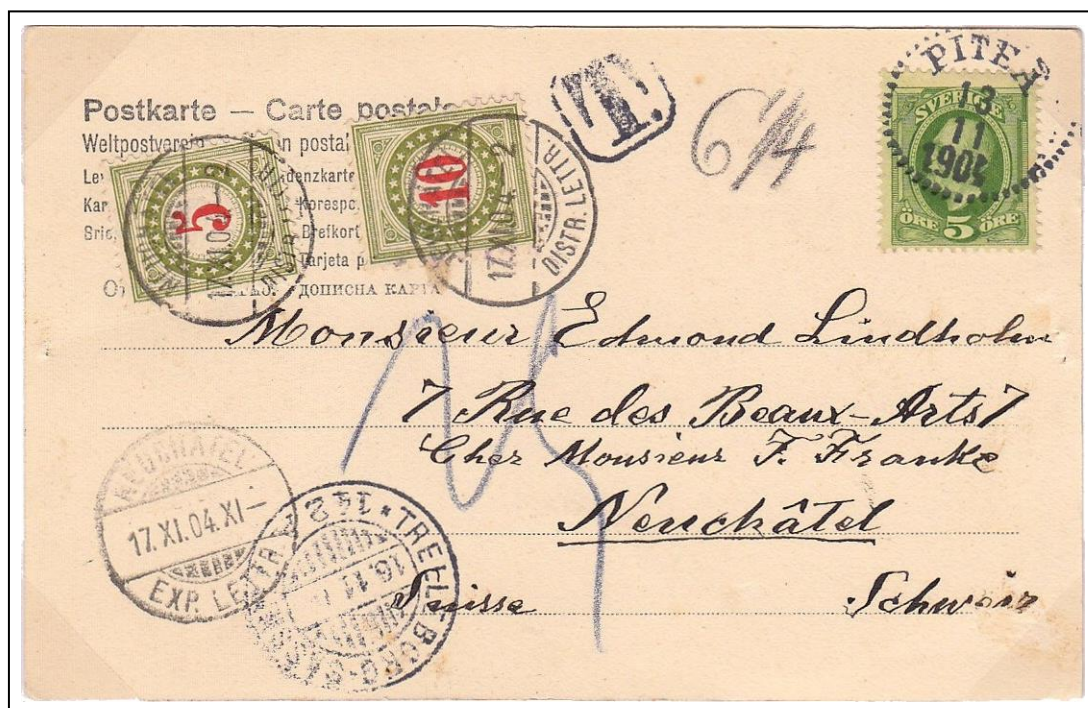 Postkarte — Carte postale
Weltpostverein postal
5
10
17.XI.04
17.XI.04 2
DISTR. LETTR.
T.
6/4
PITEÅ
13
11
1904
SVERIGE
ÖRE 5 ÖRE
Brefkort
ДОПИСНА КАРТА
Monsieur Edmond Lindholm
7 Rue des Beaux-Arts 7
Chez Monsieur F. Franke
Neuchâtel
Suisse Schweiz
15
NEUCHATEL
17.XI.04.XI-
EXP. LETTR.
142 * TRELLEBORG-SASSNITZ
16.11